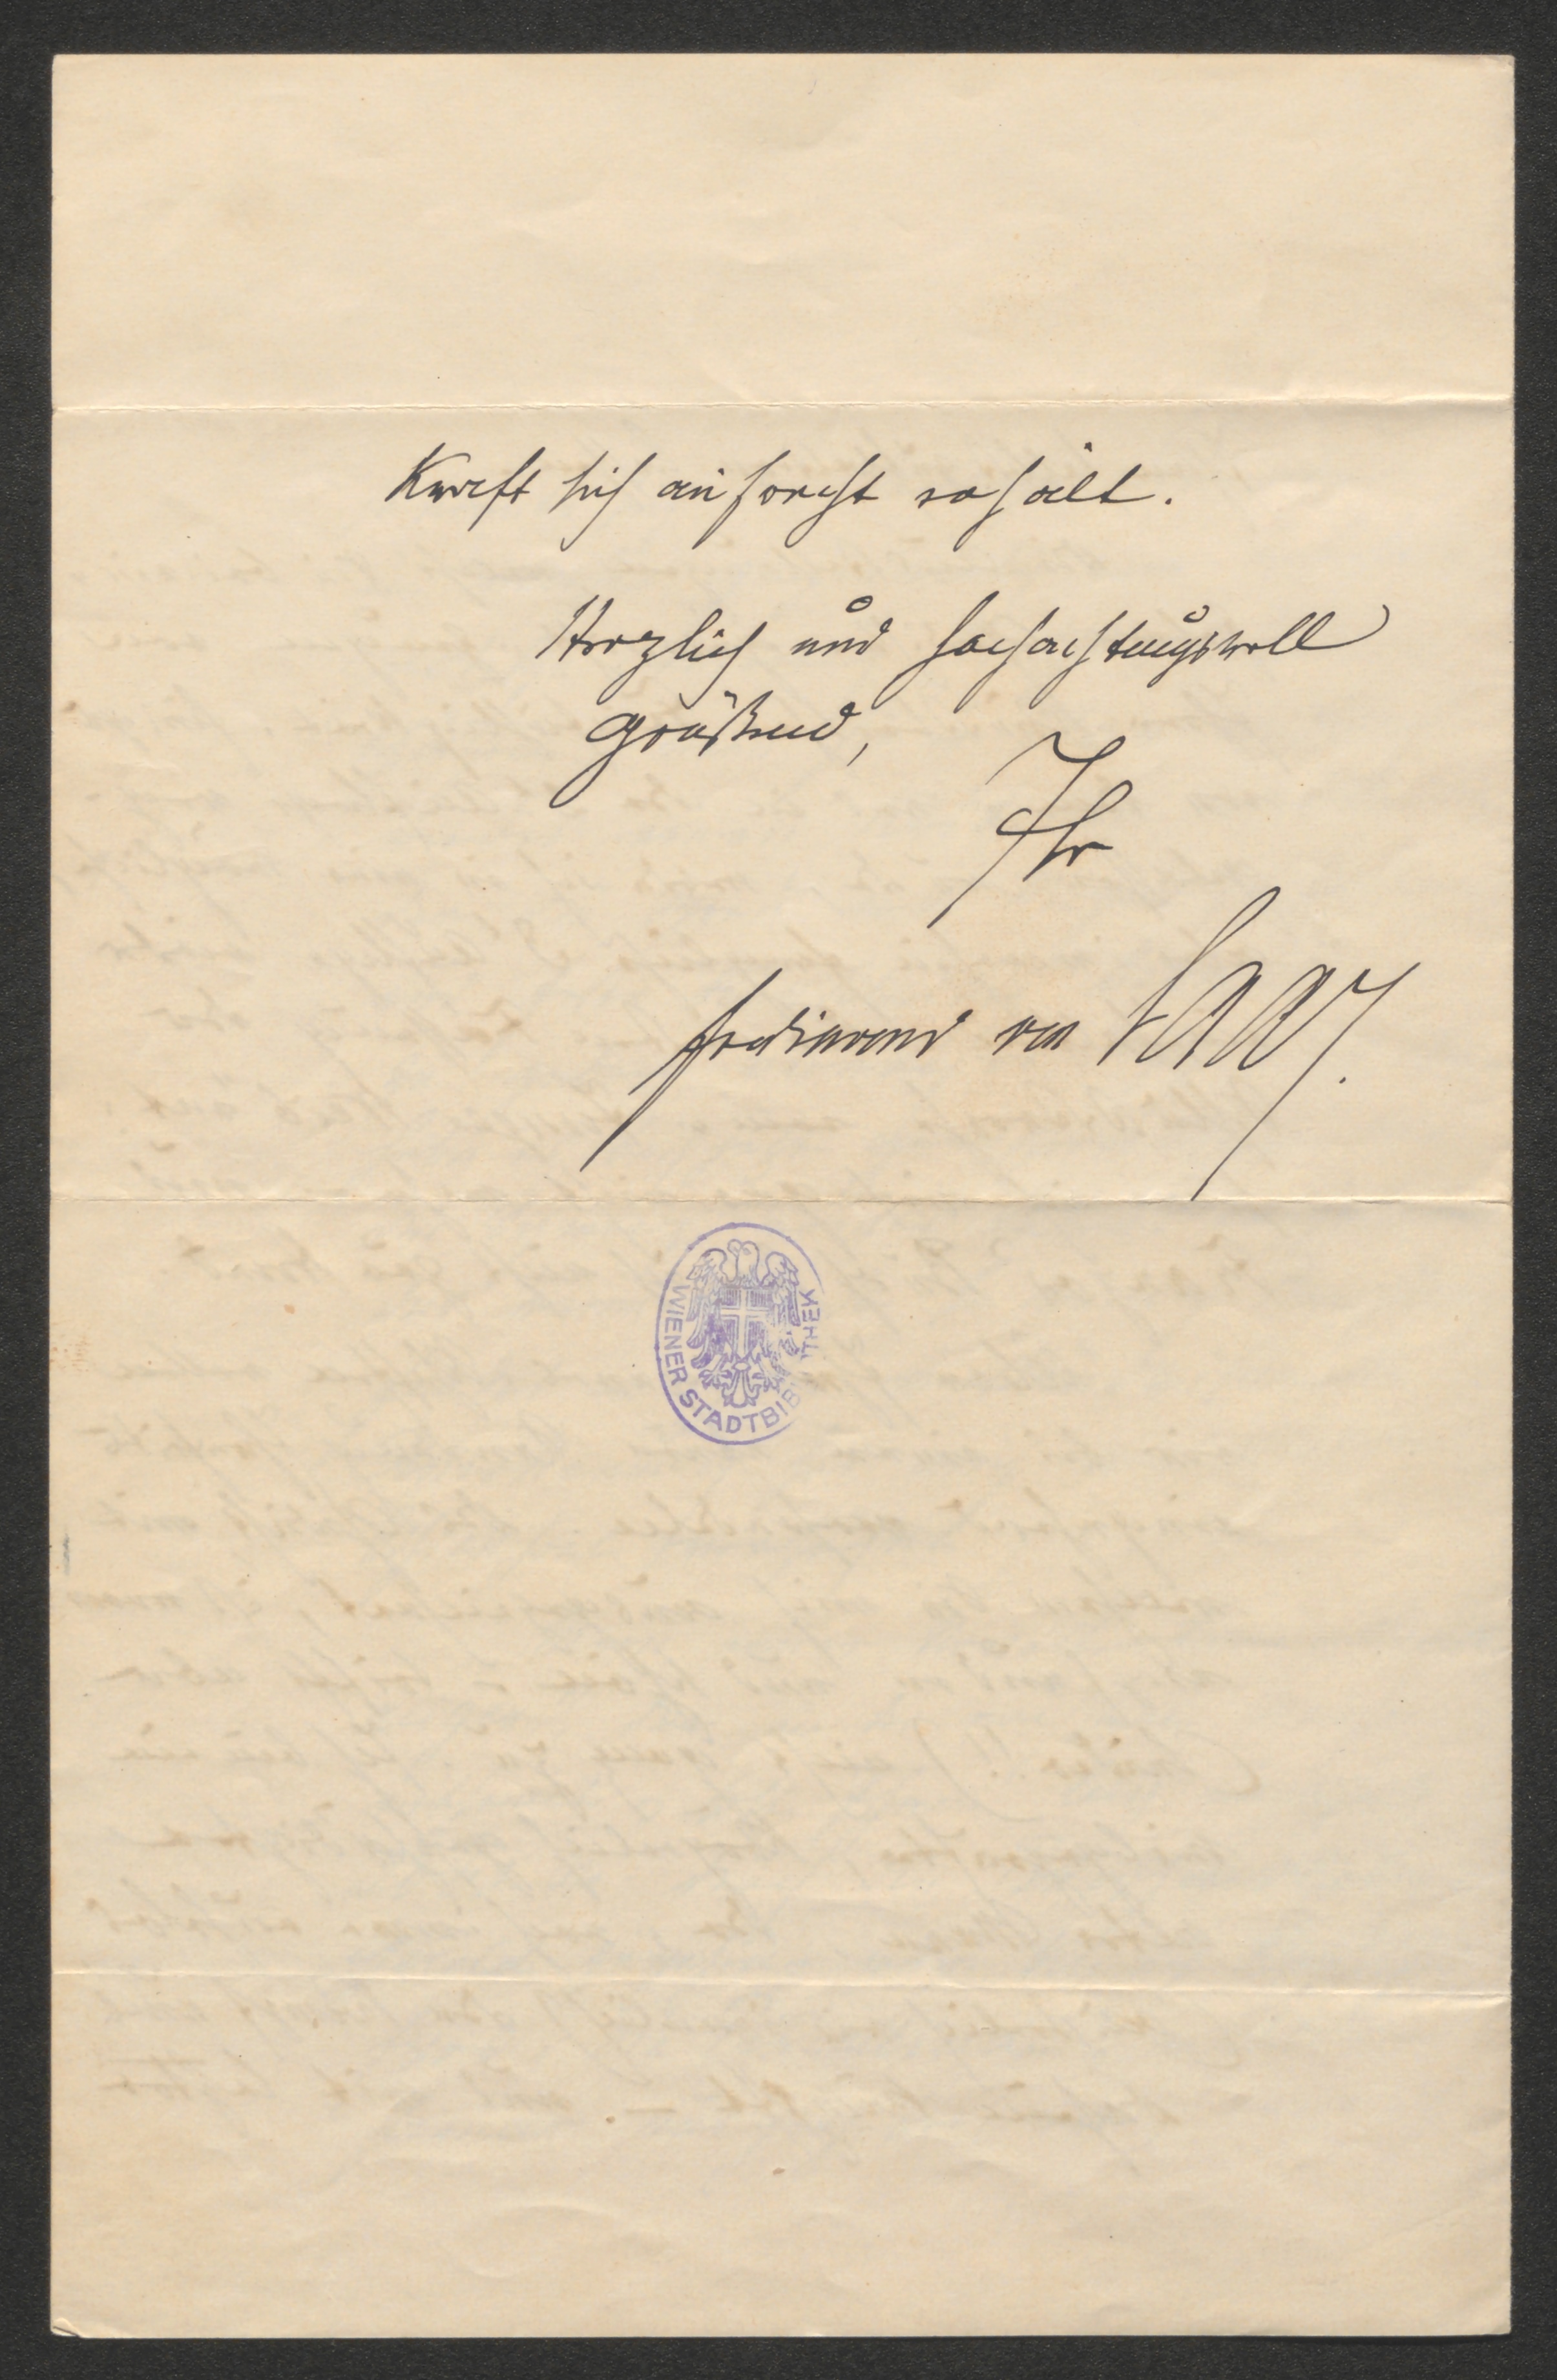 Kraft sich aufrecht erhält.
Herzlich und hochachtungsvoll
grüßend,
Ihr
Ferdinand von Saar.
WIENER STADTBIBLIOTHEK